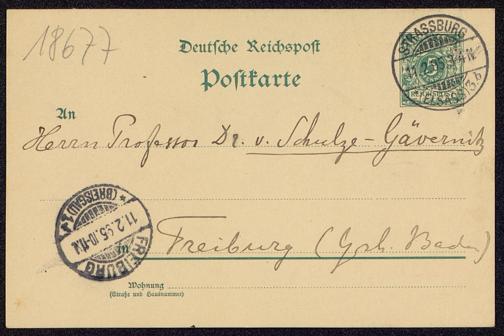 18677
Deutsche Reichspost
Postkarte
STRASSBURG
11.2.95.
5
(ELSASS)
An
Herrn Professor Dr. v. Schulze-Gävernitz
(BREISGAU)
11.2.95.10-11N.
FREIBURG
in Freiburg (Grh. Baden)
Wohnung
(Straße und Hausnummer)